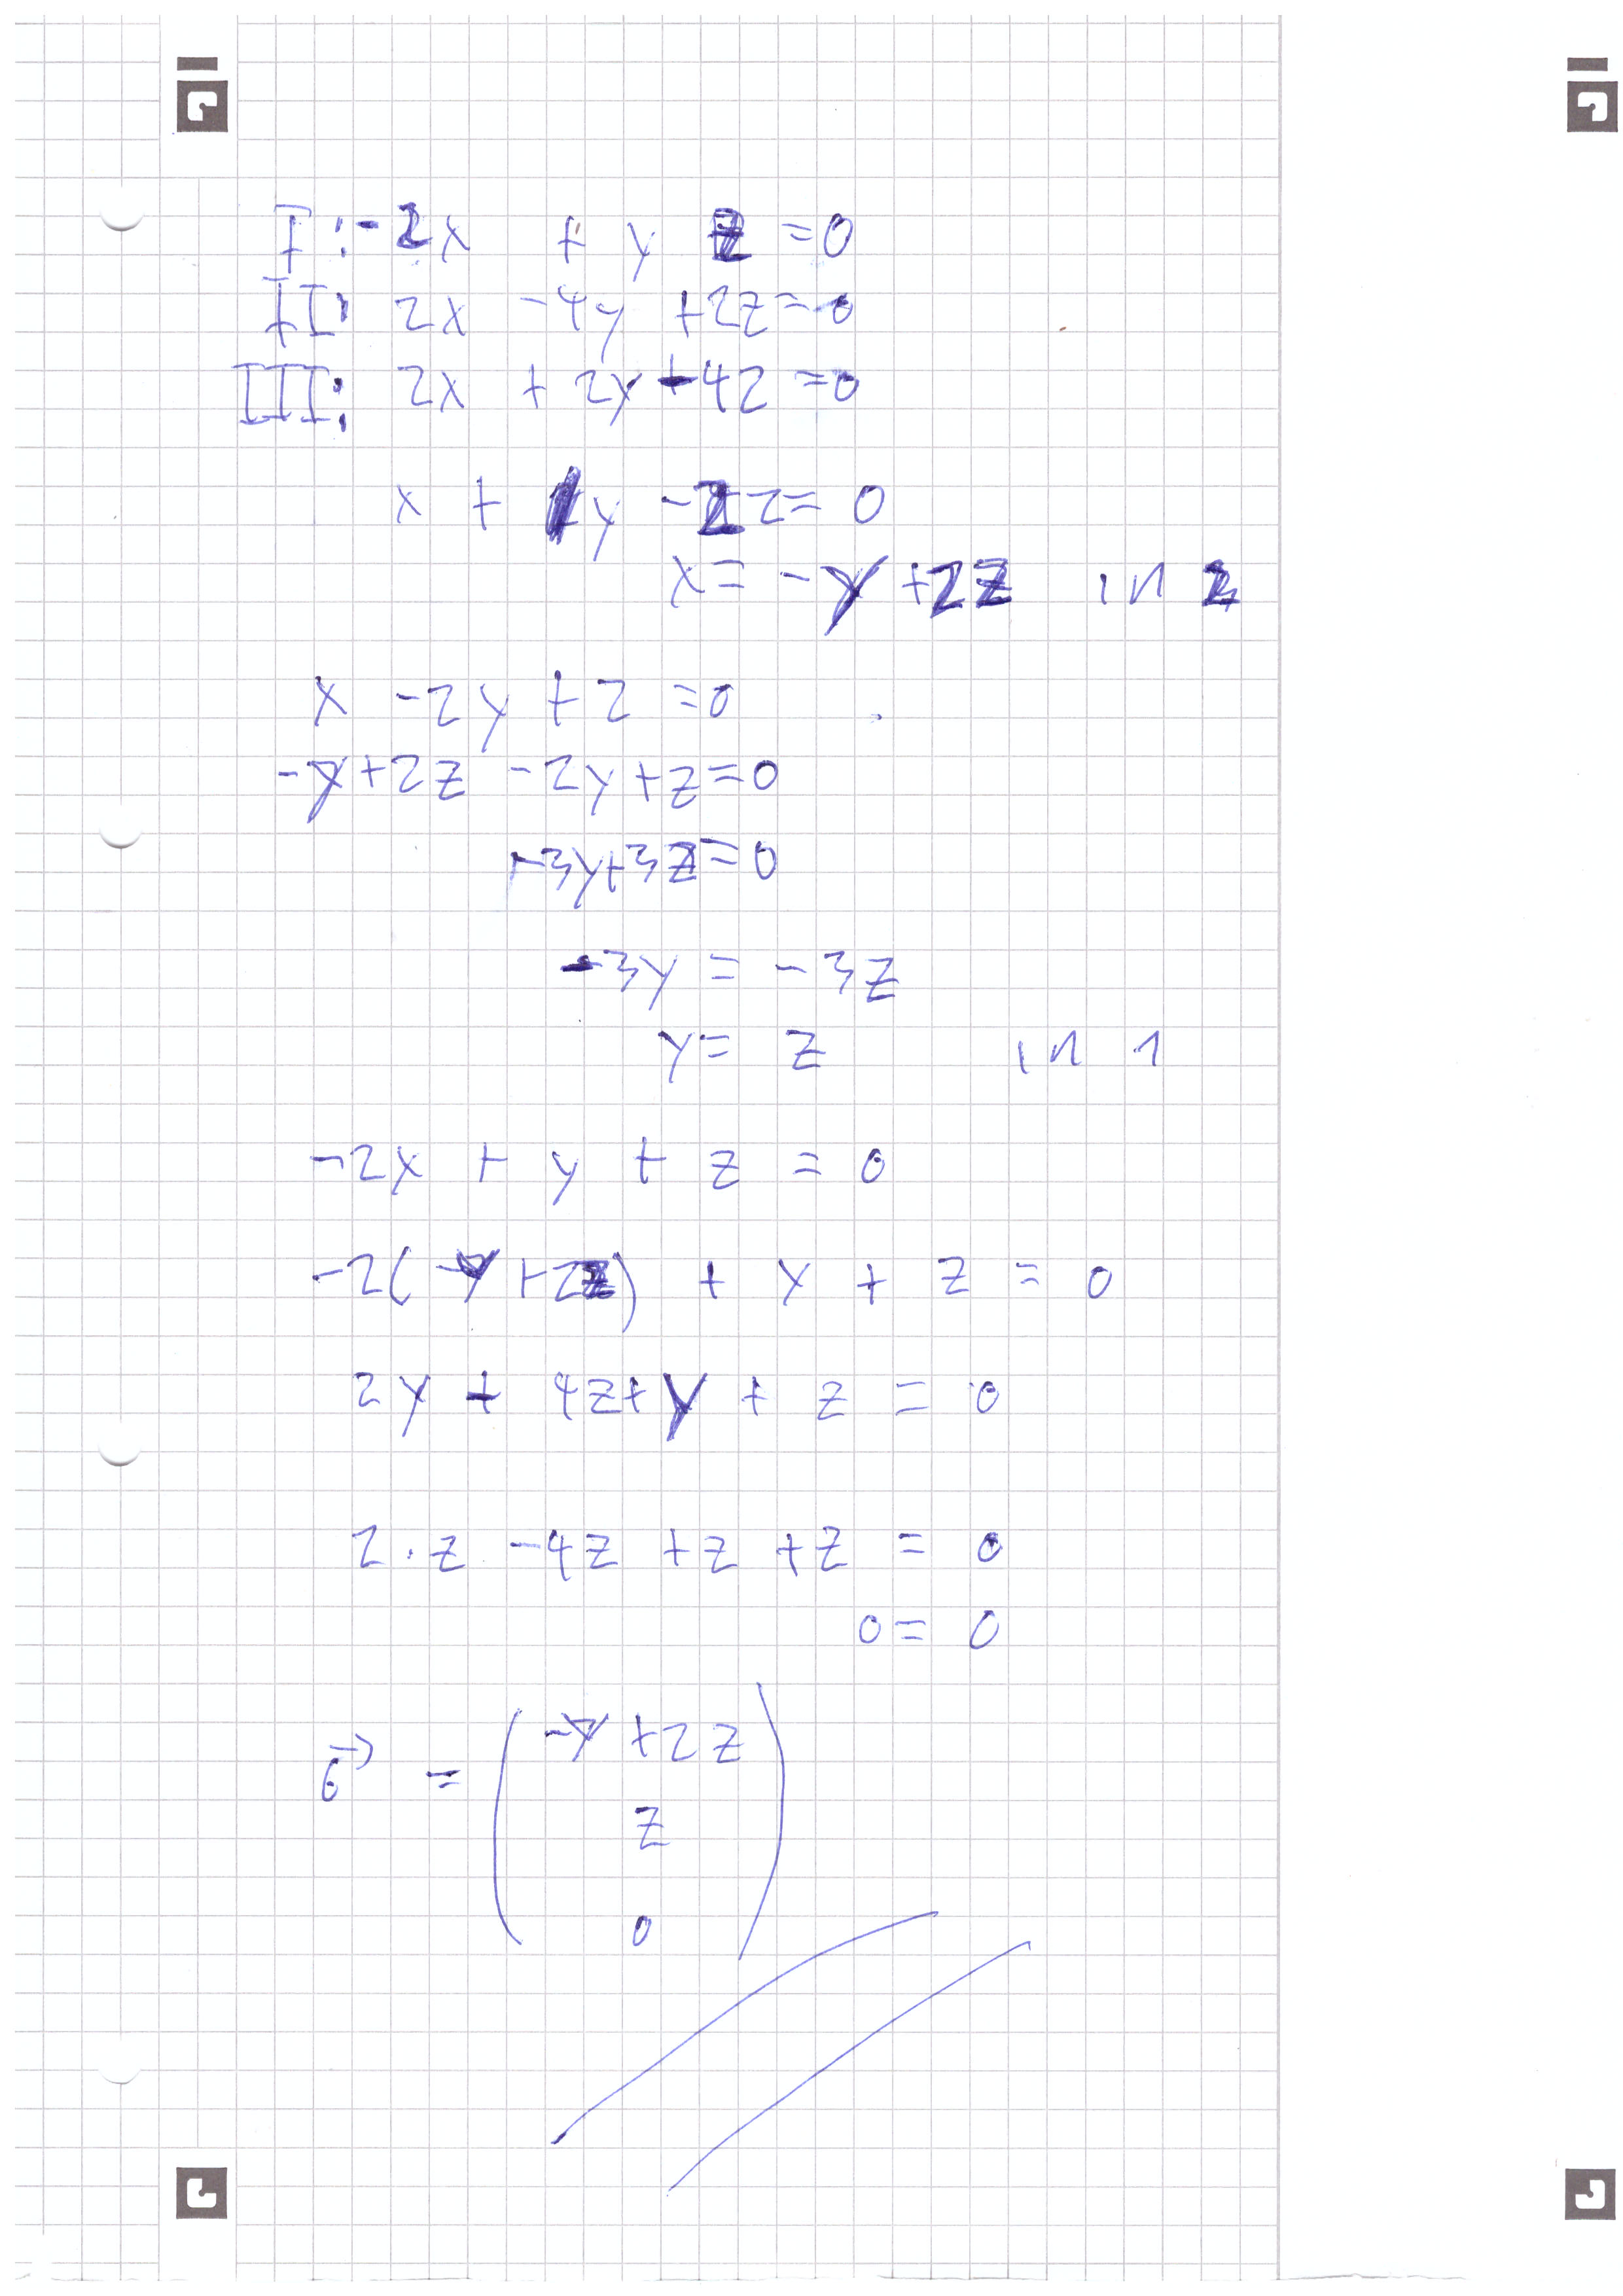 I: -2x + y z = 0
II: 2x -4y +2z = 0
III: 2x + 2y -4z = 0
x + 1y -2z = 0
x = -y +2z in 2
x -2y + z = 0
-y +2z -2y + z = 0
-3y +3z = 0
-3y = -3z
y = z in 1
-2x + y + z = 0
-2(-y +2z) + y + z = 0
2y + 4z + y + z = 0
2 · z -4z + z + z = 0
0 = 0
= ( -y +2z
z
0 )